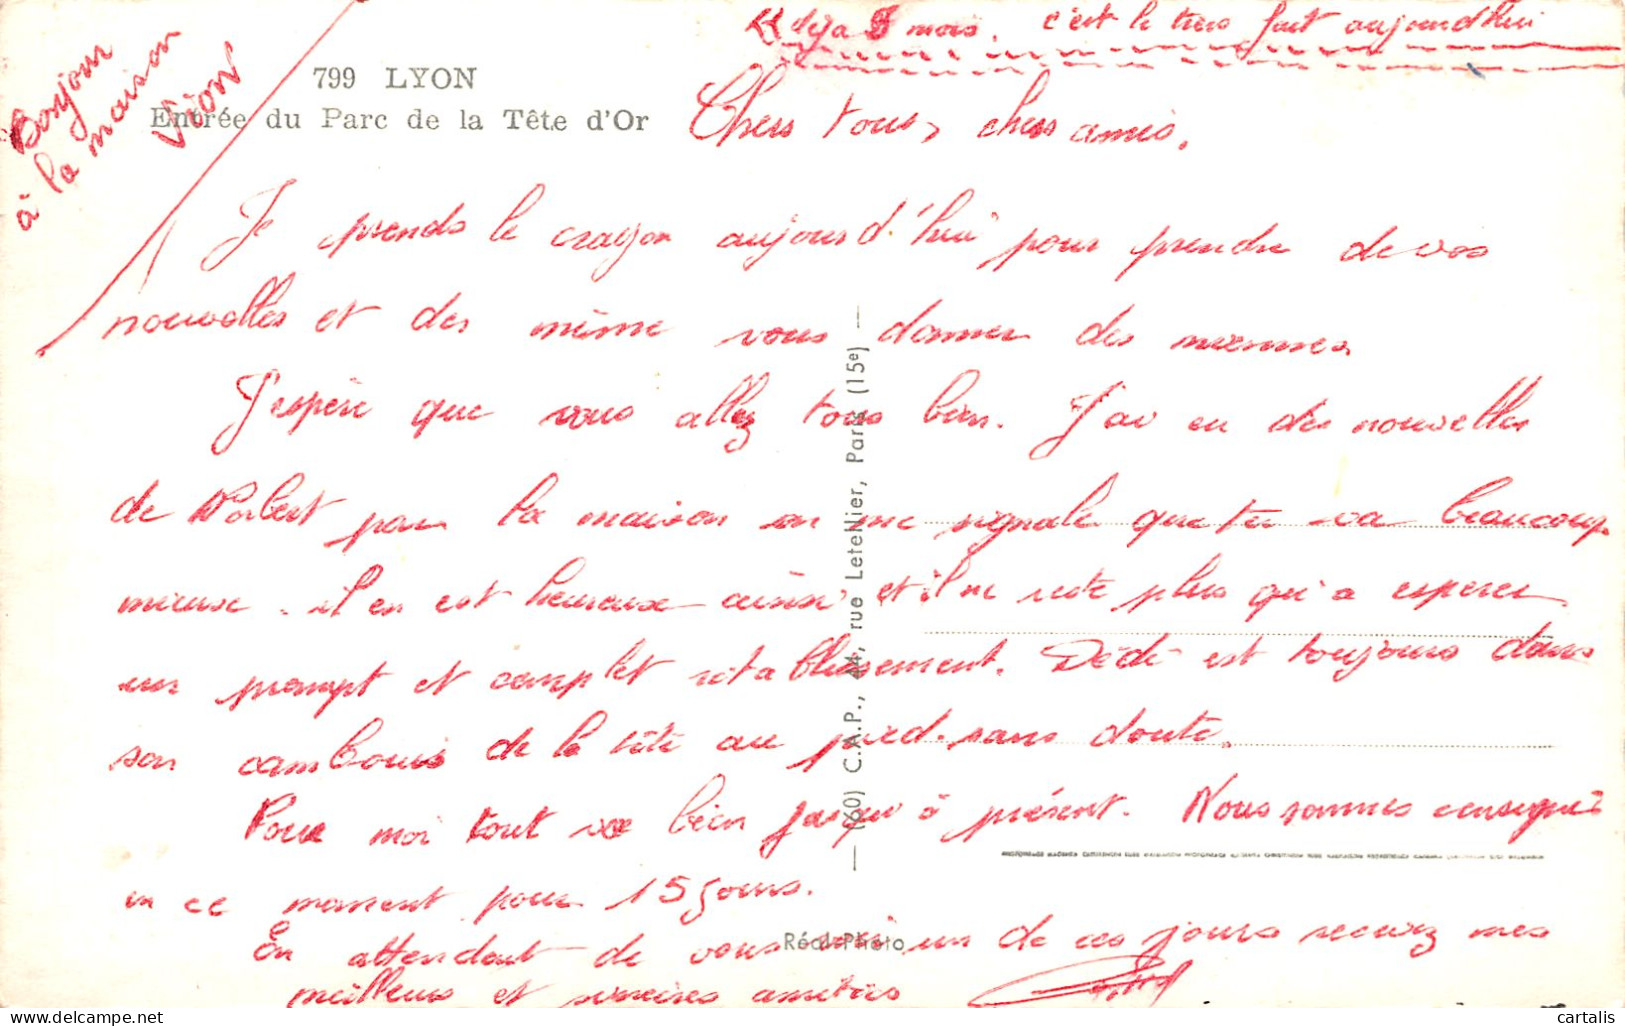 déja 8 mois. c'est le tiers fait aujourd'hui
Bonjour
à la maison
VION
799 LYON
Entrée du Parc de la Tête d'Or
Chers tous, chers amis,
Je prends le crayon aujourd'hui pour prendre de vos
nouvelles et des même vous donner des miennes
J'espère que vous allez tous bien. J'ai eu des nouvelles
de Norbert par la maison on me signale que tu va beaucoup
mieux. il en est heureux ainsi et il ne reste plus qu'a esperer
un prompt et complet rétablissement. Dédé est toujours dans
son cambouis de la tête au pied. sans doute.
Pour moi tout va bien jusqu'à présent. Nous sommes consigné
en ce moment pour 15 jours.
En attendant de vous un de ces jours recevez mes
meilleurs et sincères amitiés
(60) C.A.P., 44, rue Letellier, Paris (15e)
Réal-Photo
cartalis